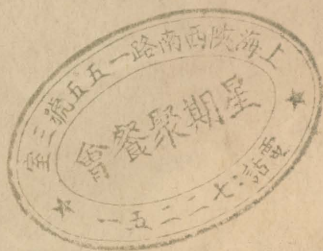 上海陝西南路一五五號三室
星期聚餐會
電話:七二二五一